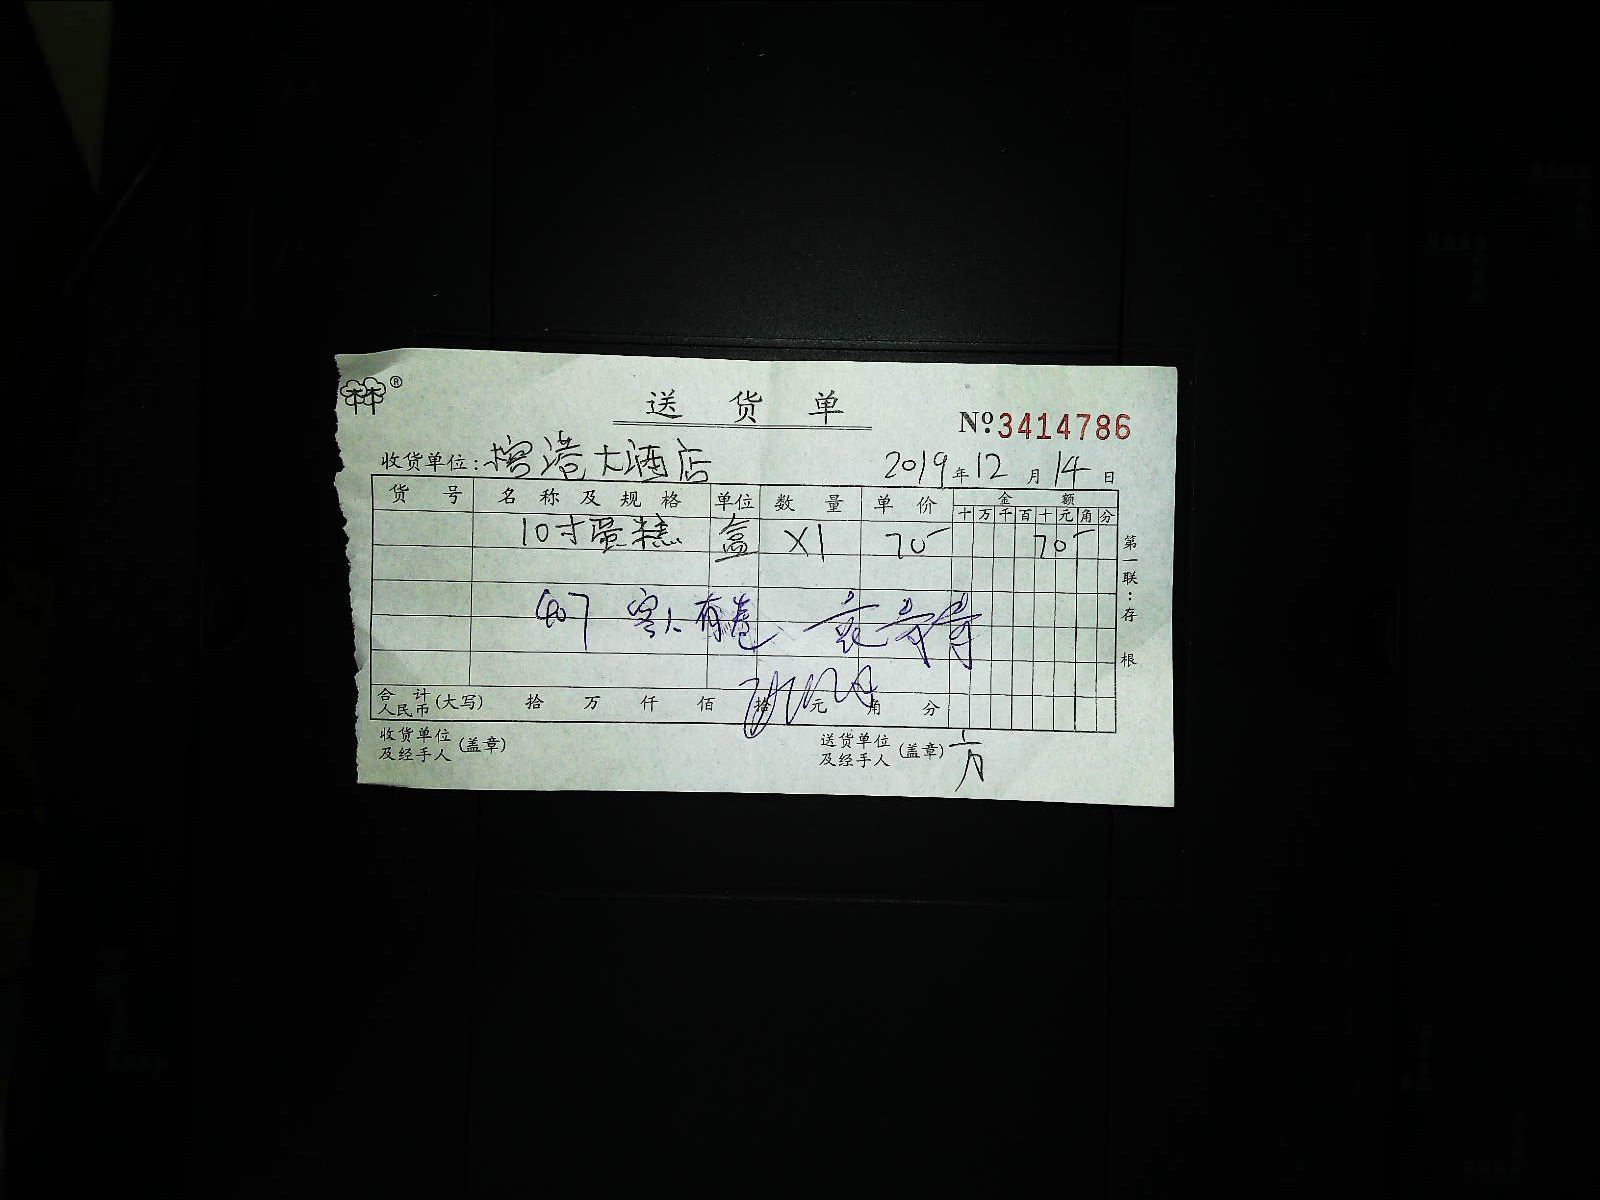 送货单
№3414786
收货单位:榕港大酒店 2019年12月14日
货号 名称及规格 单位 数量 单价 金额
十万千百十元角分
10寸蛋糕 盒 X1 70- 70-
407 客人有
合计人民币(大写) 拾 万 仟 佰 拾 元 角 分
收货单位及经手人(盖章) 送货单位及经手人(盖章) 方
第一联:存根